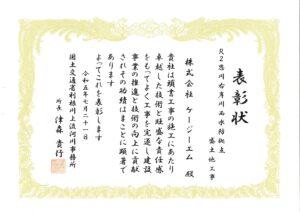 表彰状
R2思川右岸川西水防拠点
盛土他工事
株式会社 ケージーエム 殿
貴社は頭書工事の施工にあたり
卓越した技術と旺盛な責任感
をもってよく工事を完遂し建設
事業の推進と技術の向上に貢献
されその功績はまことに顕著で
あります
よってこれを表彰します
令和五年七月二十一日
国土交通省利根川上流河川事務所
所長 津森貴行